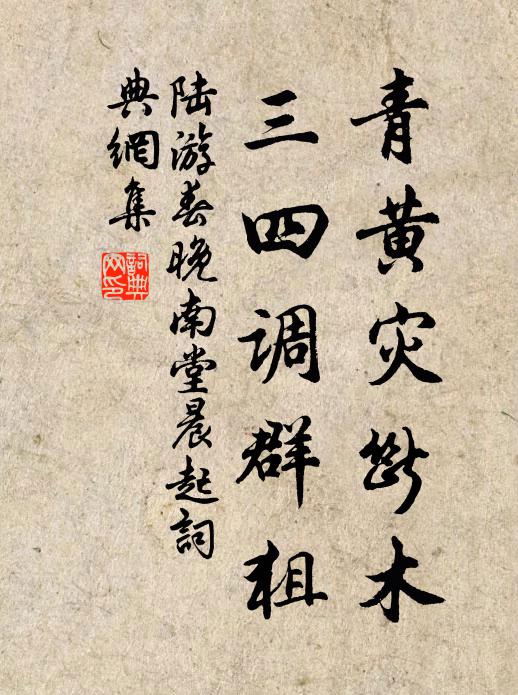 青黄灾断木
三四调群狙
陆游春晚南堂晨起词
典網集
詞典网印